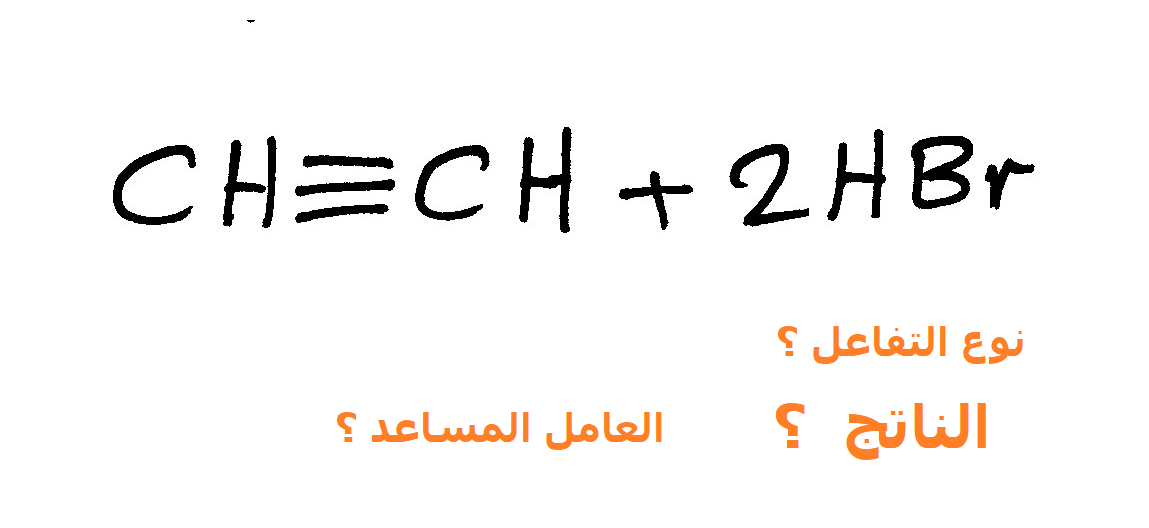 CH≡CH + 2HBr
نوع التفاعل ؟
الناتج ؟
العامل المساعد ؟